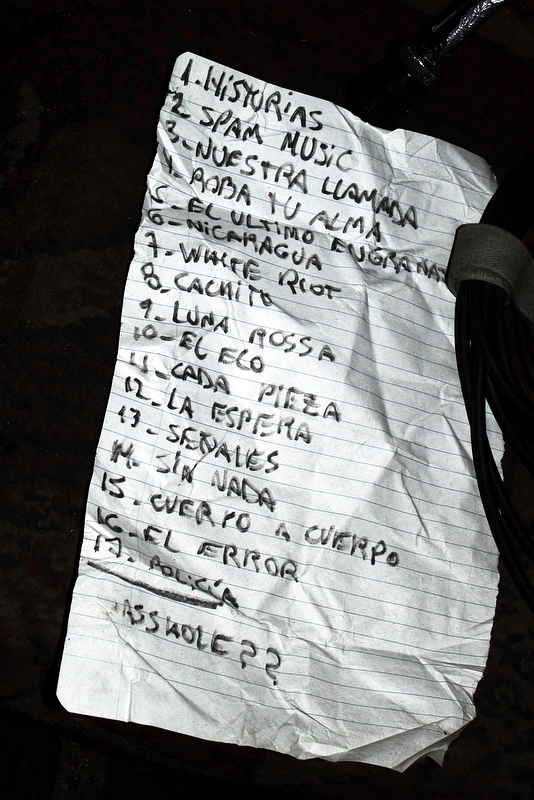 1. HISTORIAS
2. SPAM MUSIC
3. NUESTRA LLAMADA
4. ROBA TU ALMA
5. EL ULTIMO ENGRANAJ
6- NICARAGUA
7. WHITE RIOT
8. CACHITO
9. LUNA ROSSA
10- EL ECO
11- CADA PIEZA
12- LA ESPERA
13 - SEÑALES
14. SIN NADA
15 - CUERPO A CUERPO
16- EL ERROR
17- POLICÍA
ASSHOLE??